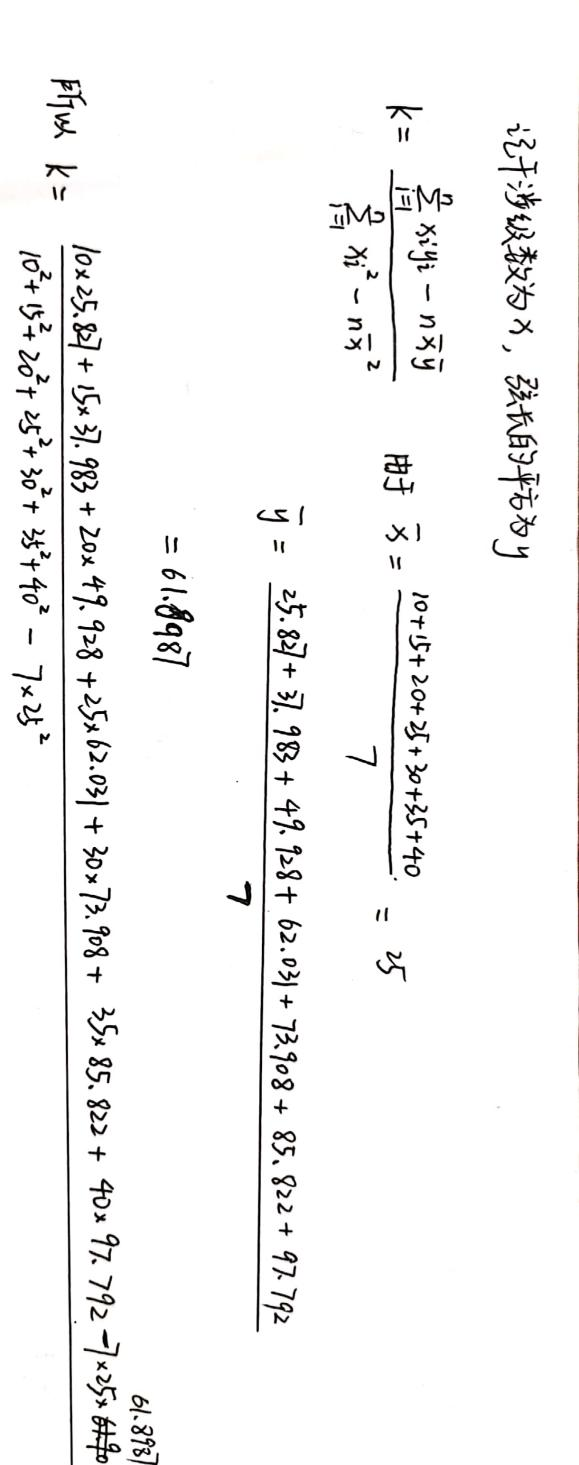 记干涉级数为x，弦长的平方为y
k = \frac{\sum_{i=1}^{n} x_i y_i - n\bar{x}\bar{y}}{\sum_{i=1}^{n} x_i^2 - n\bar{x}^2} 由于 \bar{x} = \frac{10+15+20+25+30+35+40}{7} = 25
\bar{y} = \frac{25.827+37.983+49.928+62.031+73.908+85.822+97.792}{7}
= 61.8987
所以 k = \frac{10×25.827+15×37.983+20×49.928+25×62.031+30×73.908+35×85.822+40×97.792-7×25×61.8987}{10^2+15^2+20^2+25^2+30^2+35^2+40^2-7×25^2}